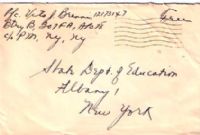 Pfc. Vito J. Brenna 12173147
Btry B, Bn FA,
c/o P.M., Ny, Ny
Free
State Dept. of Education
Albany 1
New York